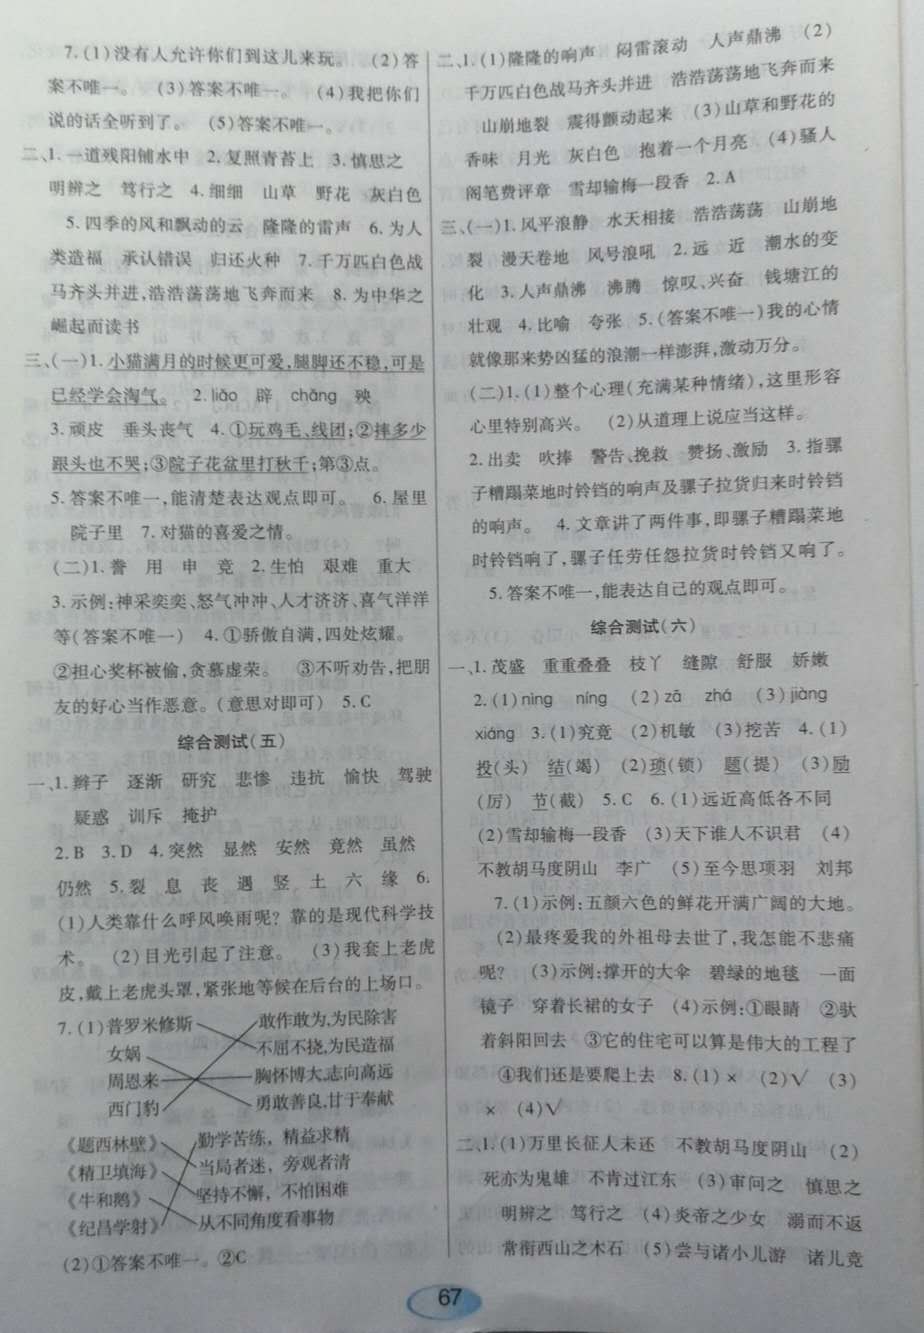 7.(1)没有人允许你们到这儿来玩。 (2)答
案不唯一。 (3)答案不唯一。 (4)我把你们
说的话全听到了。 (5)答案不唯一。
二、1.一道残阳铺水中 2.复照青苔上 3.慎思之
明辨之 笃行之 4.细细 山草 野花 灰白色
5.四季的风和飘动的云 隆隆的雷声 6.为人
类造福 承认错误 归还火种 7.千万匹白色战
马齐头并进,浩浩荡荡地飞奔而来 8.为中华之
崛起而读书
三、(一)1.小猫满月的时候更可爱,腿脚还不稳,可是
已经学会淘气。 2.liǎo 辟 chǎng 殃
3.顽皮 垂头丧气 4.①玩鸡毛、线团;②摔多少
跟头也不哭;③院子花盆里打秋千;第③点。
5.答案不唯一,能清楚表达观点即可。 6.屋里
院子里 7.对猫的喜爱之情。
(二)1.誊 用 申 竞 2.生怕 艰难 重大
3.示例:神采奕奕、怒气冲冲、人才济济、喜气洋洋
等(答案不唯一) 4.①骄傲自满,四处炫耀。
②担心奖杯被偷,贪慕虚荣。 ③不听劝告,把朋
友的好心当作恶意。(意思对即可) 5.C
综合测试(五)
一、1.辫子 逐渐 研究 悲惨 违抗 愉快 驾驶
疑惑 训斥 掩护
2.B 3.D 4.突然 显然 安然 竟然 虽然
仍然 5.裂 息 丧 遇 竖 土 六 缘 6.
(1)人类靠什么呼风唤雨呢?靠的是现代科学技
术。 (2)目光引起了注意。 (3)我套上老虎
皮,戴上老虎头罩,紧张地等候在后台的上场口。
7.(1)普罗米修斯 敢作敢为,为民除害
女娲 不屈不挠,为民造福
周恩来 胸怀博大,志向高远
西门豹 勇敢善良,甘于奉献
《题西林壁》 勤学苦练，精益求精
《精卫填海》 当局者迷，旁观者清
《牛和鹅》 坚持不懈，不怕困难
《纪昌学射》 从不同角度看事物
(2)①答案不唯一。②C
二、1.(1)隆隆的响声 闷雷滚动 人声鼎沸 (2)
千万匹白色战马齐头并进 浩浩荡荡地飞奔而来
山崩地裂 震得颤动起来 (3)山草和野花的
香味 月光 灰白色 抱着一个月亮 (4)骚人
阁笔费评章 雪却输梅一段香 2.A
三、(一)1.风平浪静 水天相接 浩浩荡荡 山崩地
裂 漫天卷地 风号浪吼 2.远 近 潮水的变
化 3.人声鼎沸 沸腾 惊叹、兴奋 钱塘江的
壮观 4.比喻 夸张 5.(答案不唯一)我的心情
就像那来势凶猛的浪潮一样澎湃,激动万分。
(二)1.(1)整个心理(充满某种情绪),这里形容
心里特别高兴。 (2)从道理上说应当这样。
2.出卖 吹捧 警告、挽救 赞扬、激励 3.指骡
子糟蹋菜地时铃铛的响声及骡子拉货归来时铃铛
的响声。 4.文章讲了两件事,即骡子糟蹋菜地
时铃铛响了,骡子任劳任怨拉货时铃铛又响了。
5.答案不唯一,能表达自己的观点即可。
综合测试(六)
一、1.茂盛 重重叠叠 枝丫 缝隙 舒服 娇嫩
2.(1)nìng níng (2)zā zhá (3)jiàng
xiáng 3.(1)究竟 (2)机敏 (3)挖苦 4.(1)
投(头) 结(竭) (2)琐(锁) 题(提) (3)励
(厉) 节(截) 5.C 6.(1)远近高低各不同
(2)雪却输梅一段香 (3)天下谁人不识君 (4)
不教胡马度阴山 李广 (5)至今思项羽 刘邦
7.(1)示例:五颜六色的鲜花开满广阔的大地。
(2)最疼爱我的外祖母去世了,我怎能不悲痛
呢? (3)示例:撑开的大伞 碧绿的地毯 一面
镜子 穿着长裙的女子 (4)示例:①眼睛 ②驮
着斜阳回去 ③它的住宅可以算是伟大的工程了
④我们还是要爬上去 8.(1)× (2)√ (3)
× (4)√
二、1.(1)万里长征人未还 不教胡马度阴山 (2)
死亦为鬼雄 不肯过江东 (3)审问之 慎思之
明辨之 笃行之 (4)炎帝之少女 溺而不返
常衔西山之木石 (5)尝与诸小儿游 诸儿竞
67